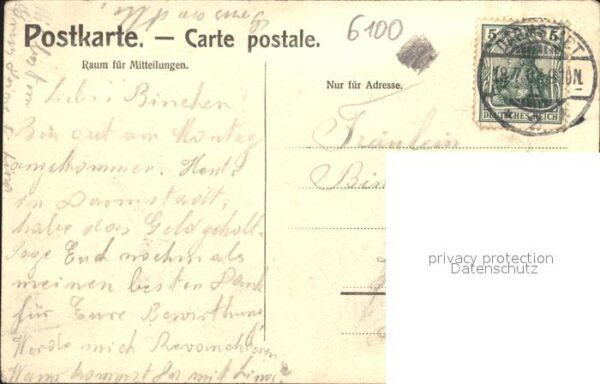 6100
Postkarte. — Carte postale.
Raum für Mitteilungen.
Nur für Adresse.
5 5
DARMSTADT
DEUTSCHES REICH
Liebes Binchen!
Bin gut am Montag
angekommen. Heute
in Darmstadt,
habe das Geld geholt.
Sage Euch nochmals
meinen besten Dank
für Eure Bewirthung
Werde mich Revanchieren
Wann kommst Du mit
Fräulein
privacy protection
Datenschutz